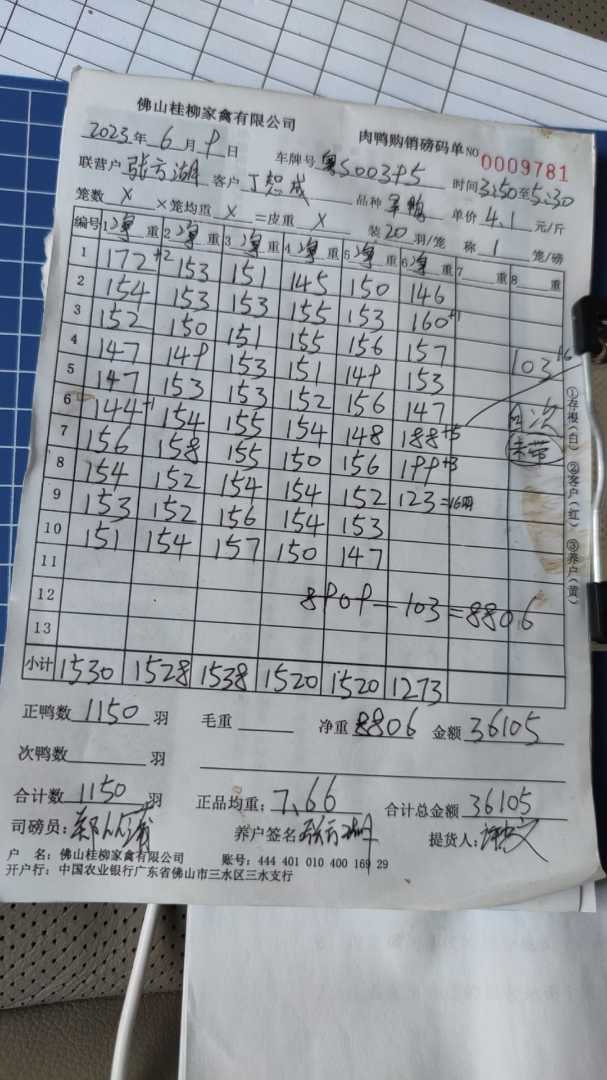 佛山桂柳家禽有限公司
肉鸭购销磅码单 NO 0009781
2023年 6月 9日 车牌号 粤S00395 时间 3:50至5:30
联营户 张方湖 客户 丁恕成 品种 单价 4.1 元/斤
笼数 X ×笼均重 X =皮重 X 装 20 羽/笼 称 1 笼/磅
编号 1净重 2净重 3净重 4净重 5净重 6净重 7 重 8 重
1 172+2 153 151 145 150 146
2 154 153 153 155 153 160+1
3 152 150 151 155 156 157
4 147 149 153 151 149 153 103+6
5 147 153 153 152 156 147
6 144+1 154 155 154 148 188+5 次
7 156 158 155 150 156 199+3 未带
8 154 152 154 154 152 123=16羽
9 153 152 156 154 153
10 151 154 157 150 147
11
12 8909-103=8806
13
小计 1530 1528 1538 1520 1520 1273
正鸭数 1150 羽 毛重 净重 8806 金额 36105
次鸭数 羽
合计数 1150 羽 正品均重: 7.66 合计总金额 36105
司磅员: 养户签名 张方湖 提货人:
户 名: 佛山桂柳家禽有限公司 账号: 444 401 010 400 169 29
开户行: 中国农业银行广东省佛山市三水区三水支行
①存根(白) ②客户(红) ③养户(黄)